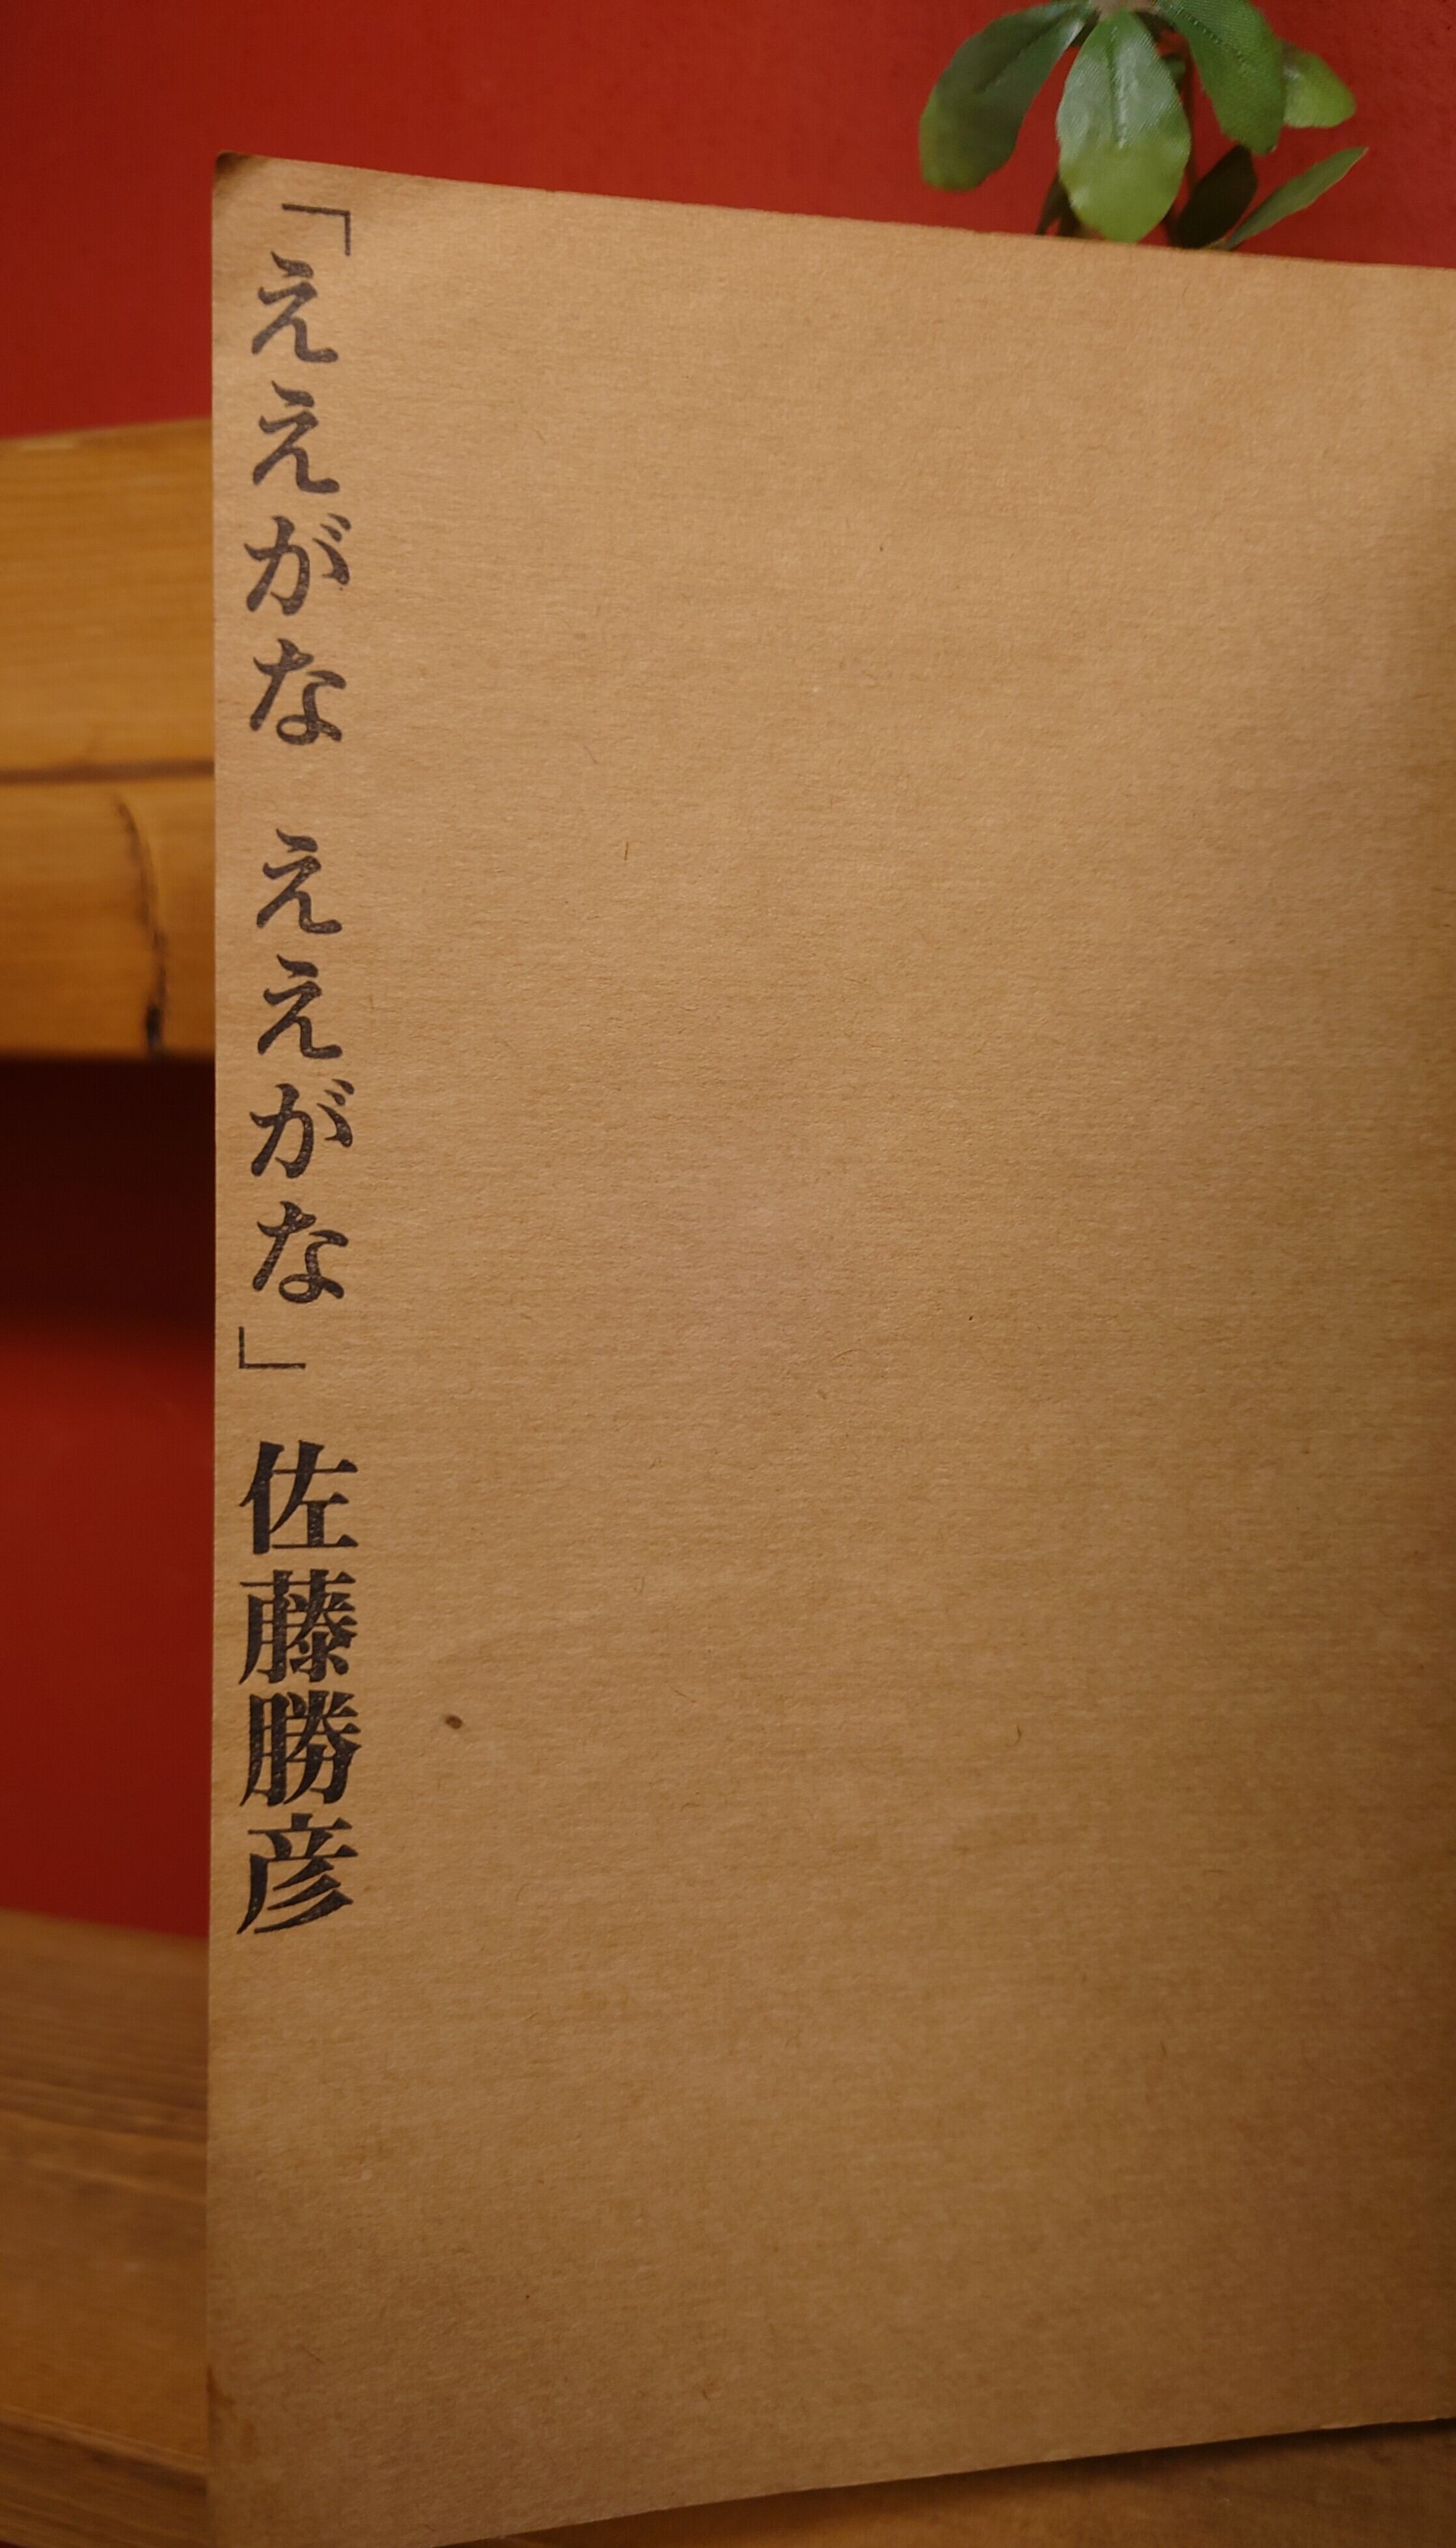 「ええがな ええがな」佐藤勝彦